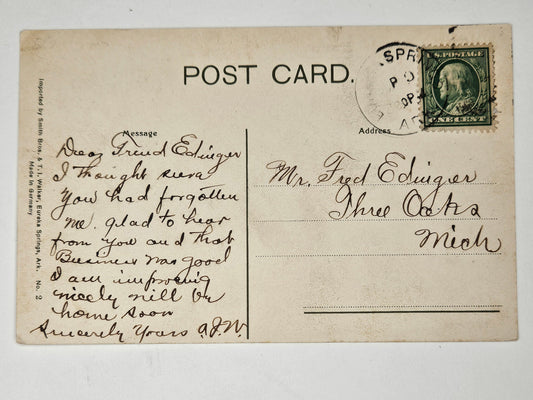 POST CARD.
SPRI
P
U.S. POSTAGE
ONE CENT
Message
Address
Imported by Smith Bros. & T.J. Walker, Eureka Springs, Ark. No. 2
Made in Germany
Dear Friend Edinger
I thought sura
You had forgotten
me. glad to hear
from you and that
Business was good
I am improving
nicely will be
home soon
Sincerely Yours A.J.W.
Mr. Fred Edinger
Three Oaks
Mich